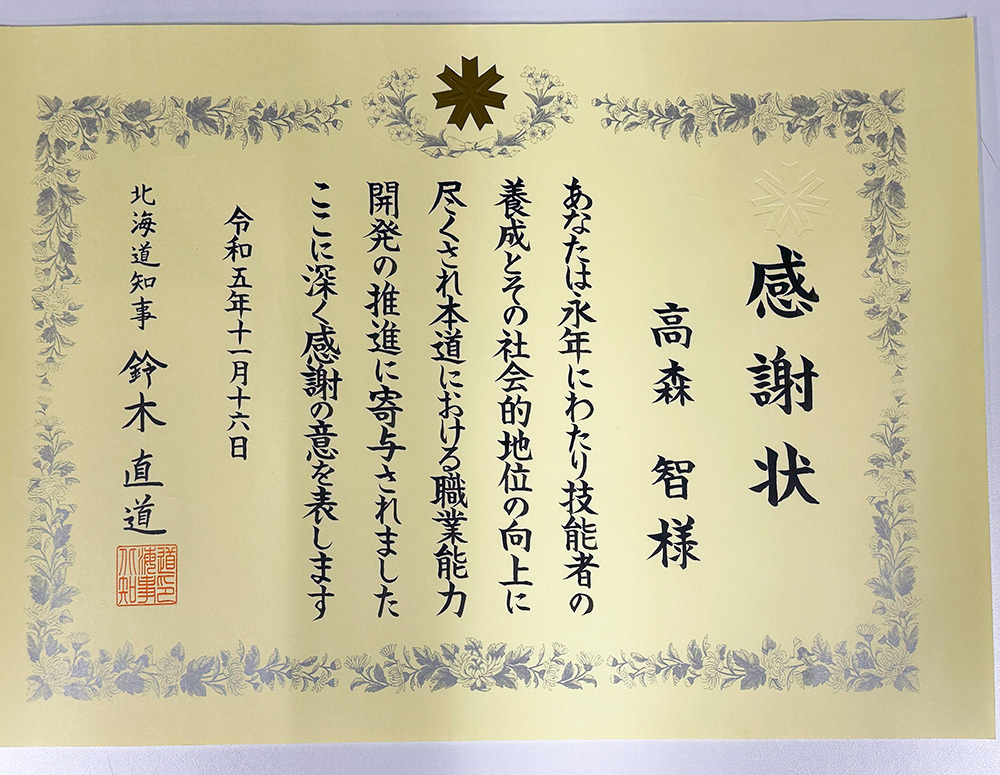 感謝状
高森 智様
あなたは永年にわたり技能者の
養成とその社会的地位の向上に
尽くされ本道における職業能力
開発の推進に寄与されました
ここに深く感謝の意を表します
令和五年十一月十六日
北海道知事 鈴木直道
道印
海事
北知